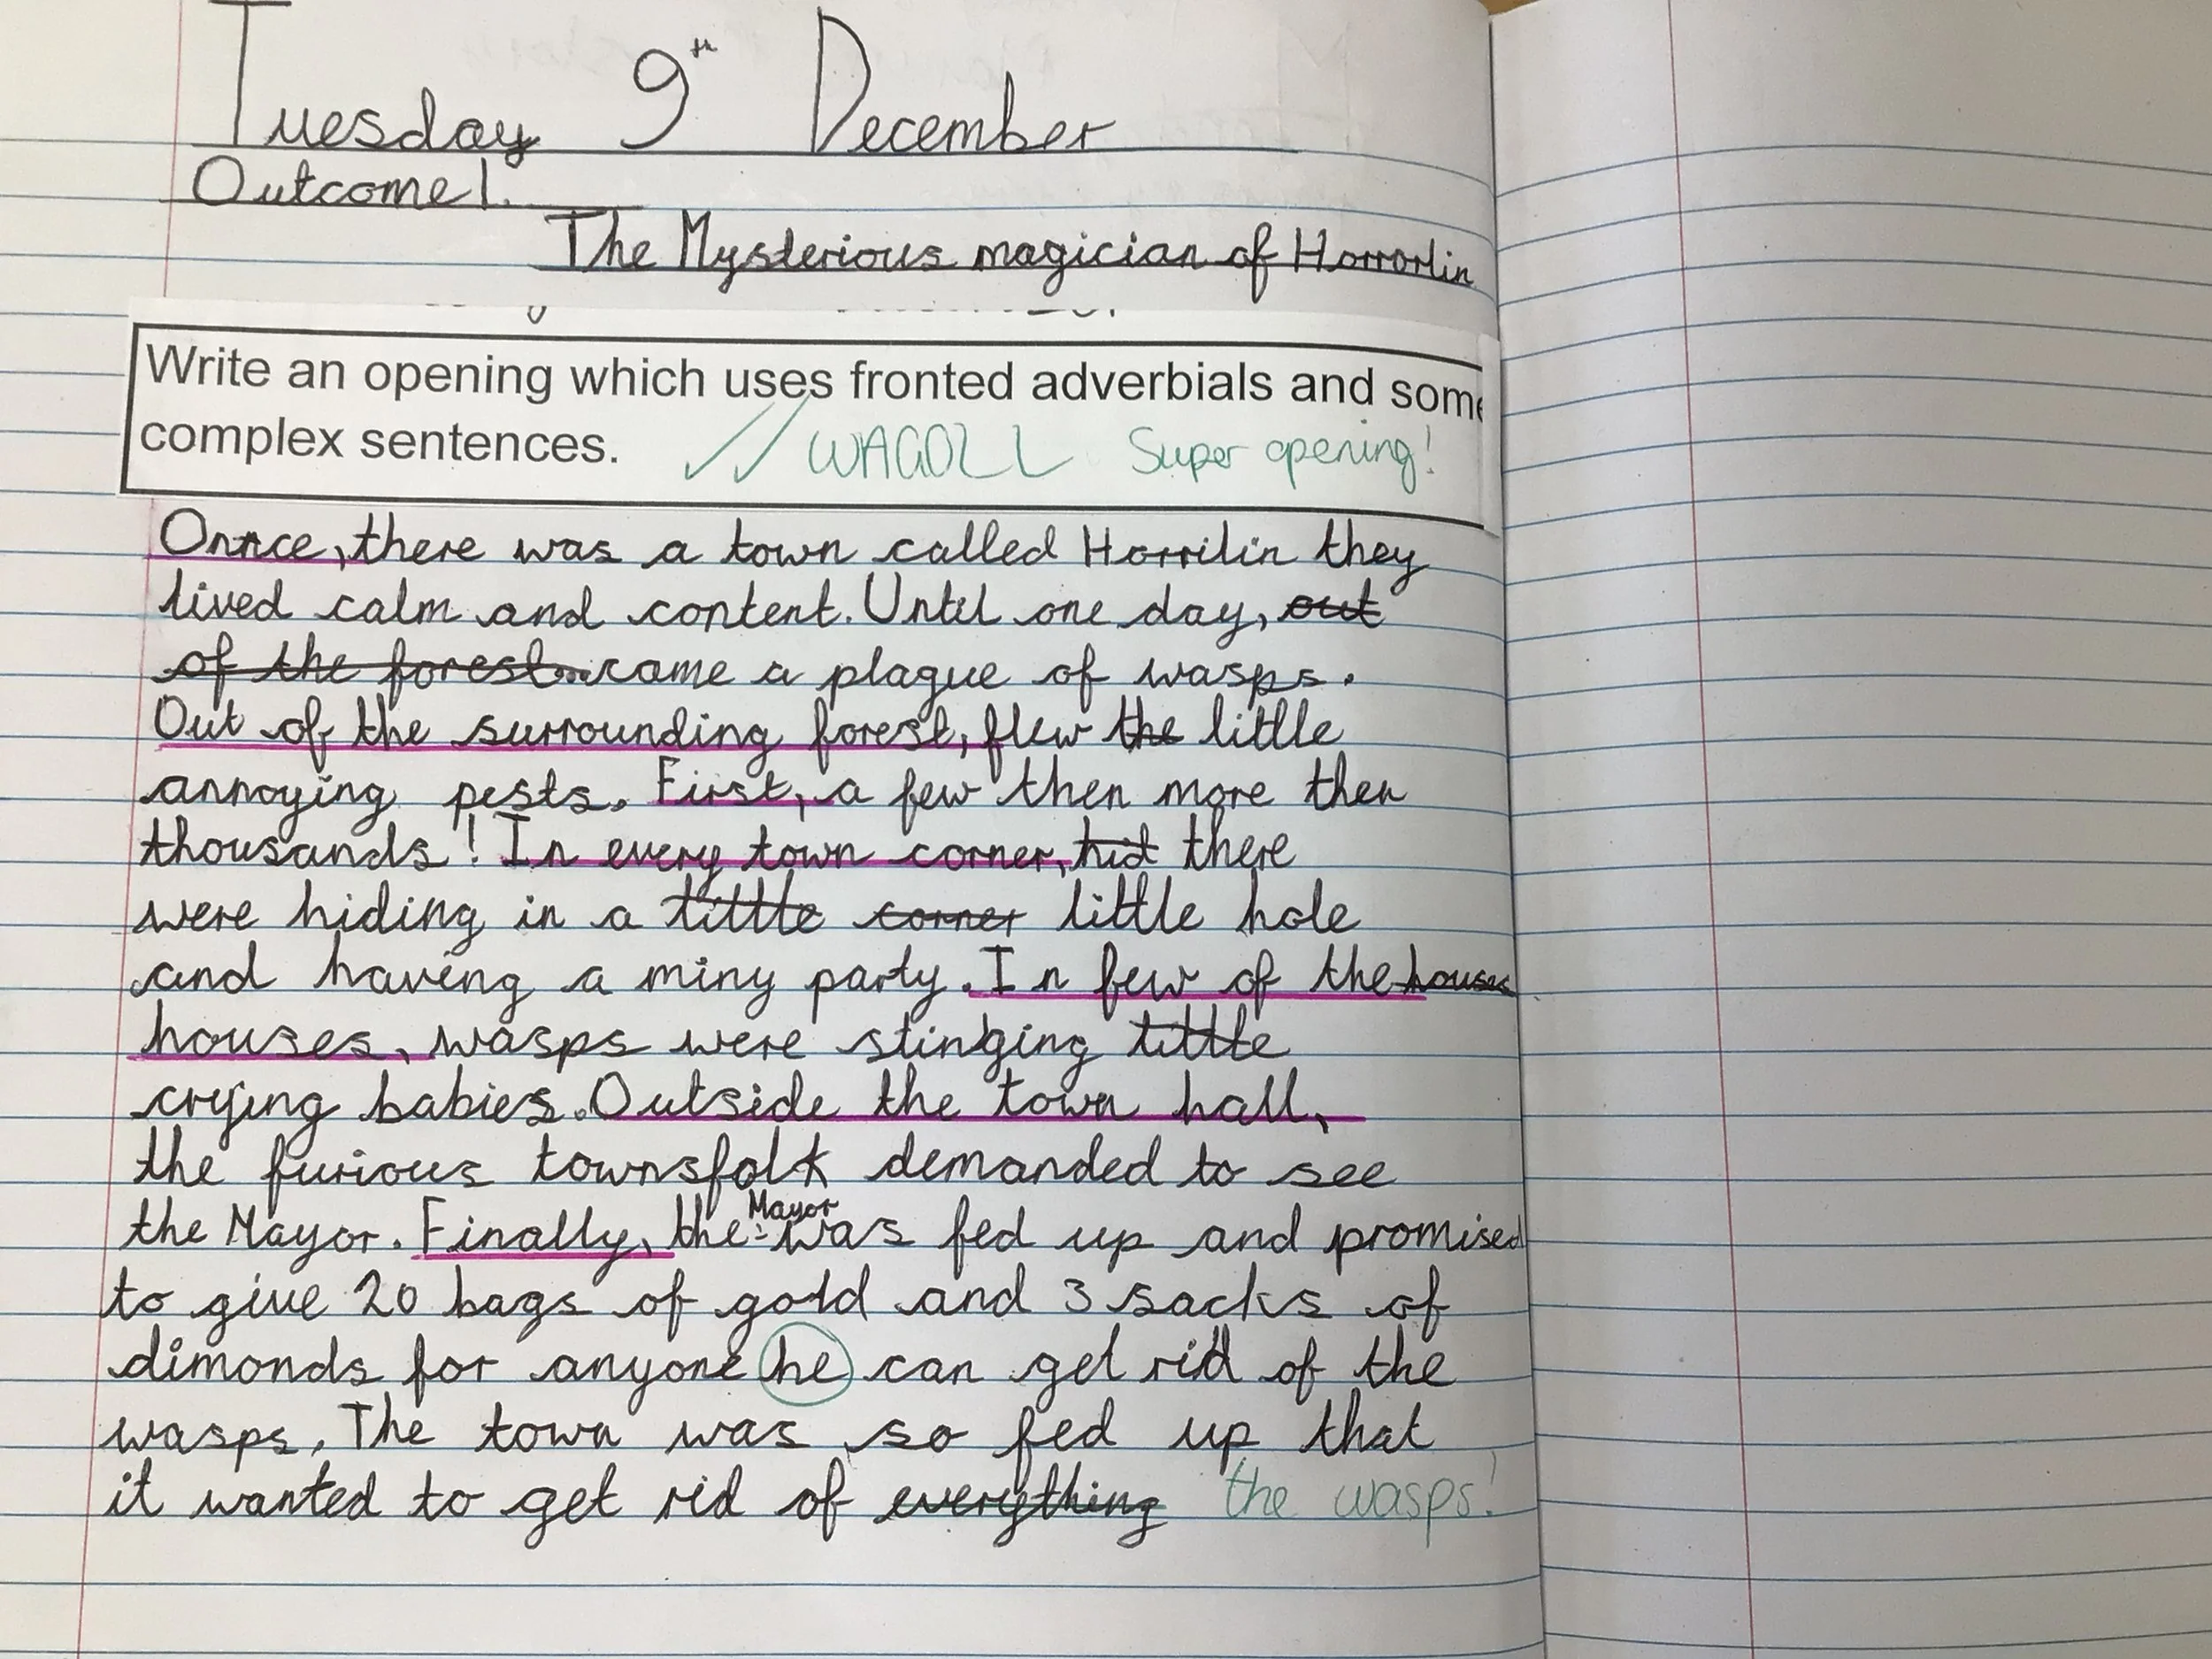 Tuesday 9th December
Outcome 1.
The Mysterious magician of Horrorlin
Write an opening which uses fronted adverbials and some
complex sentences. WAGOLL Super opening!
Onnce, there was a town called Horrilin they
lived calm and content. Until one day, out
of the forest came a plague of wasps.
Out of the surrounding forest, flew the little
annoying pests. First, a few then more then
thousands! In every town corner, hid there
were hiding in a little corner little hole
and having a miny party. In few of the houses
houses, wasps were stinging little
crying babies. Outside the town hall,
the furious townsfolk demanded to see
the Mayor. Finally, the Mayor was fed up and promised
to give 20 bags of gold and 3 sacks of
dimonds for anyone he can get rid of the
wasps. The town was so fed up that
it wanted to get rid of everything the wasps!